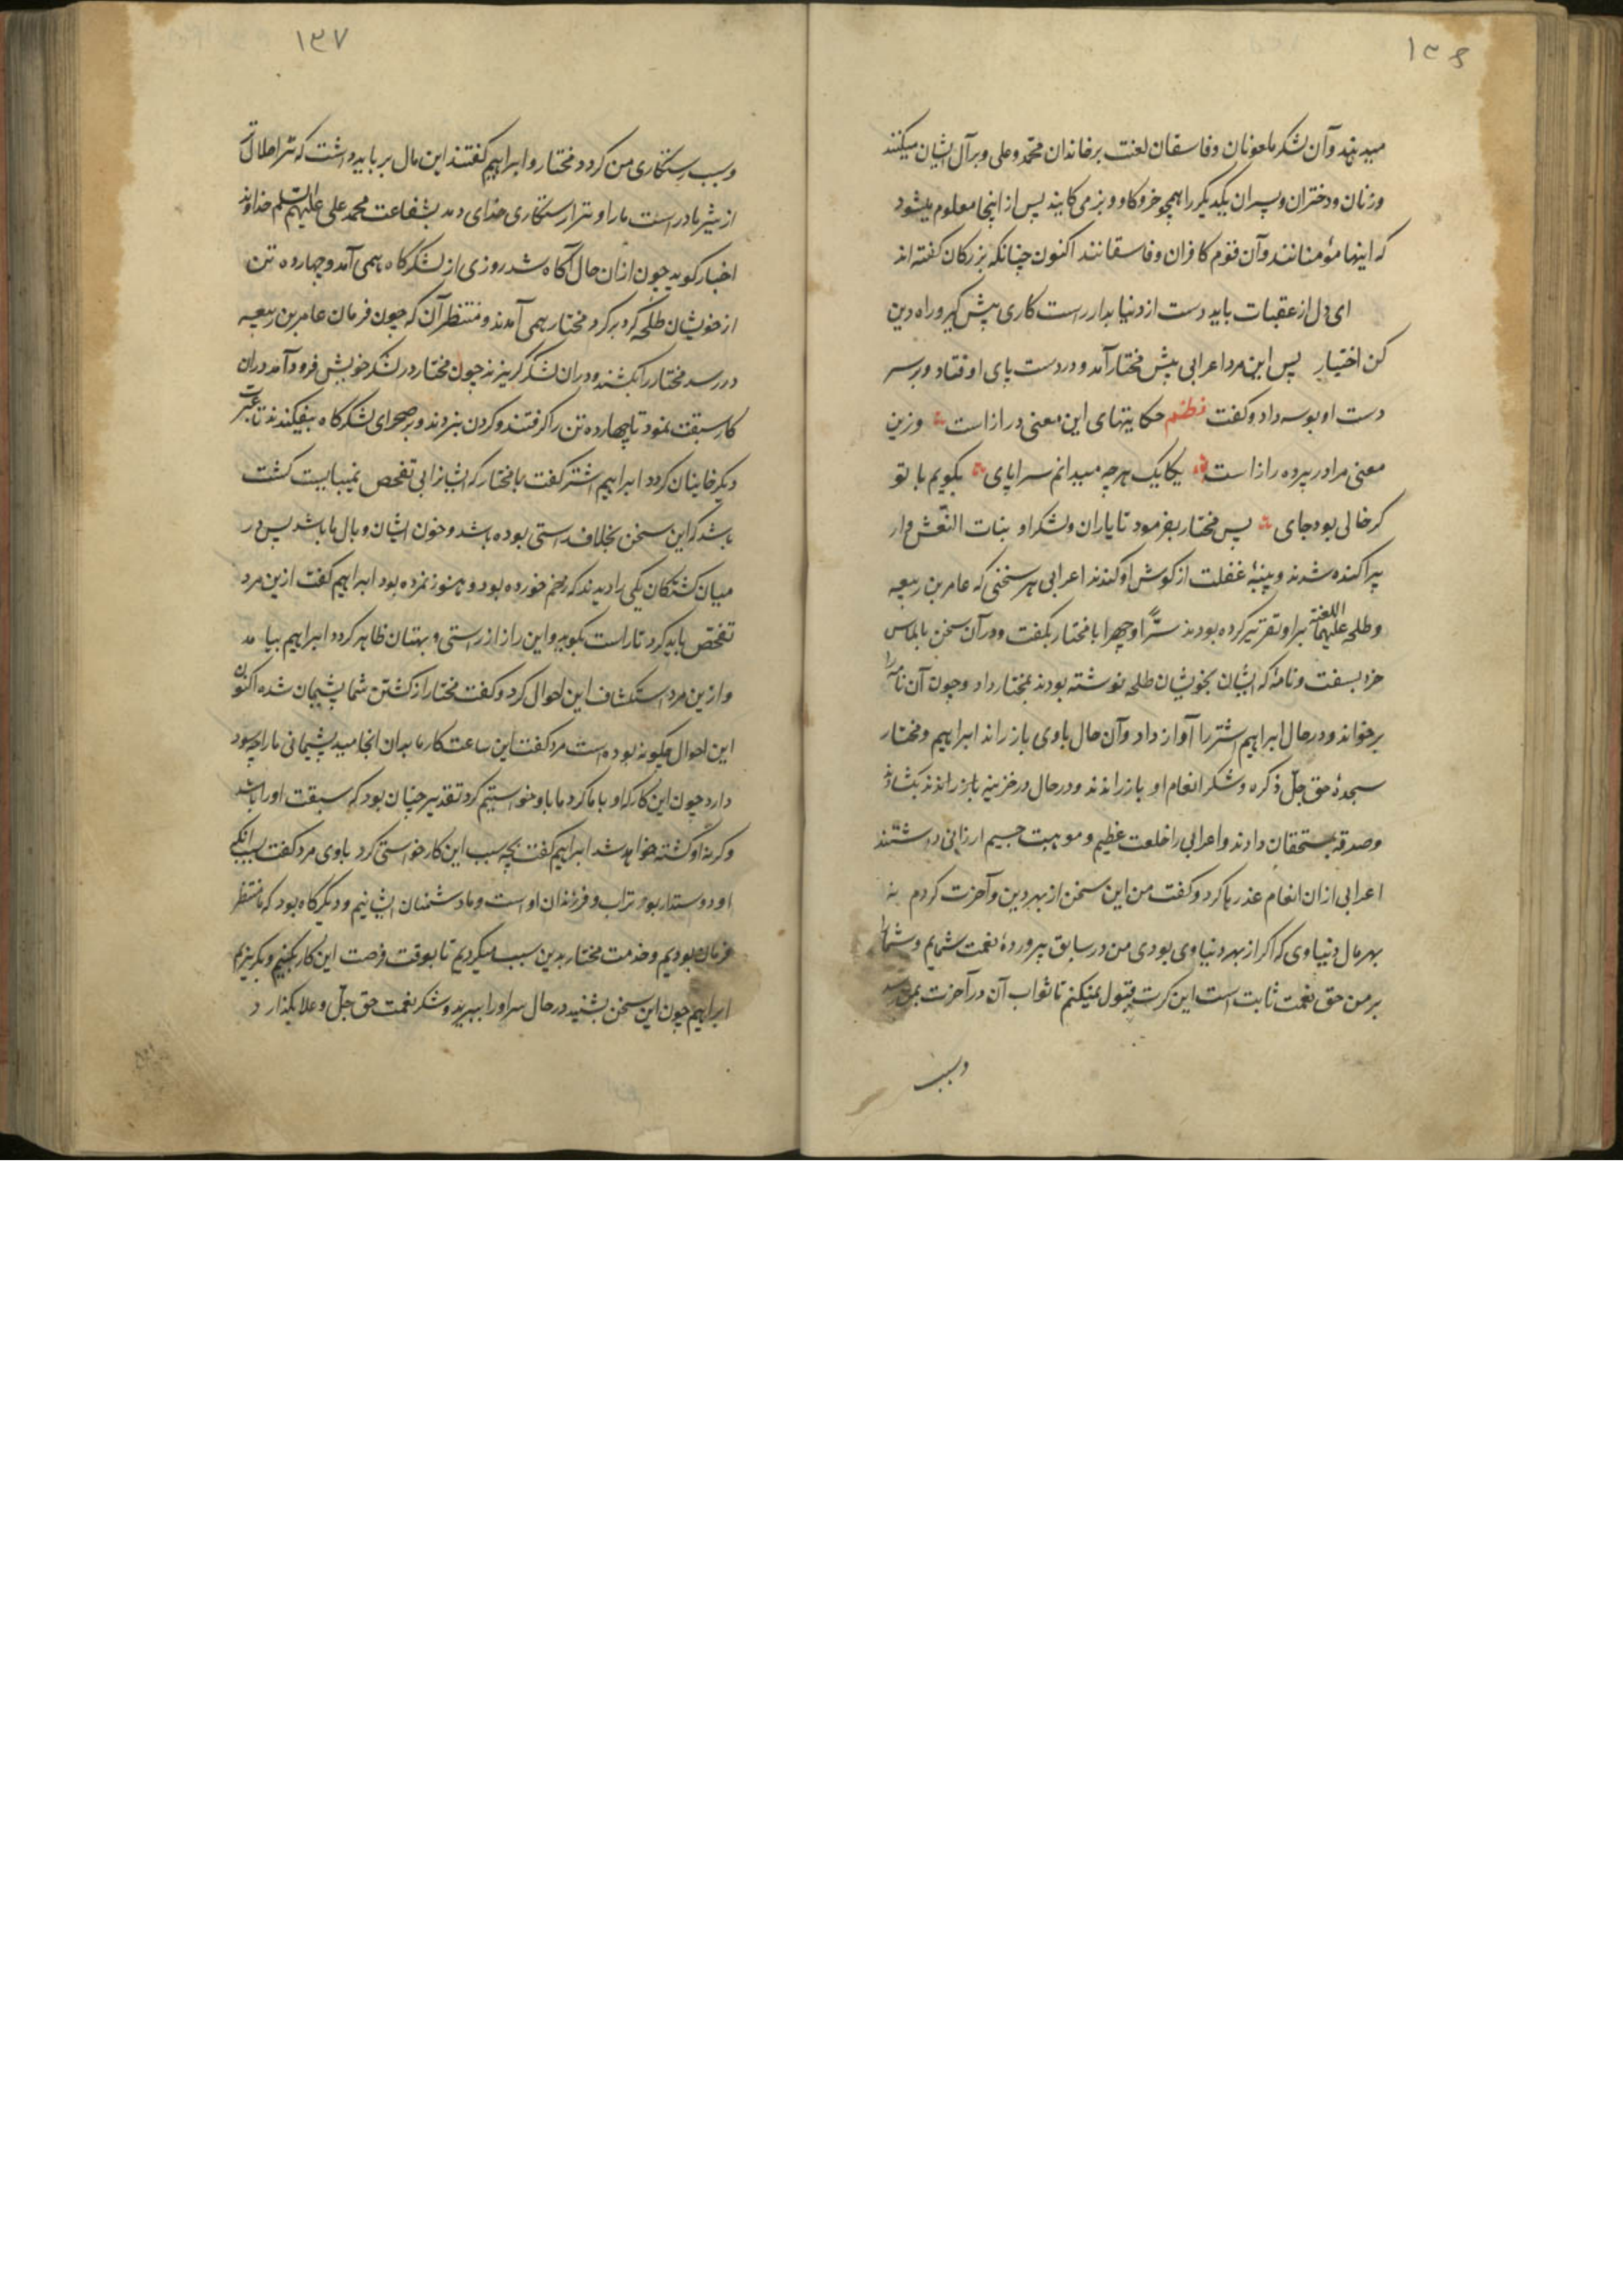 ۱۳۶
میدهند و آن لشکر ملعونان و فاسقان لعنت بر خاندان محمد و علی و بر آل ایشان میکنند
و زنان و دختران و پسران یکدیگر را همچو خر و کاو و بز می کایند پس از اینجا معلوم میشود
که اینها مؤمنانند و آن قوم کافران و فاسقانند اکنون چنانکه بزرکان کفته اند
ای دل از عقبات باید دست از دنیا بدار راست کاری پیش کیر و راه دین
کن اختیار پس این مرد اعرابی پیش مختار آمد و در دست پای او فتاد و بر سر
دست او بوسه داد و کفت نظم حکایتهای این معنی درازاست وزین
معنی مرا در پرده رازاست یکایک هرچه میدانم سراپای بکویم با تو
کر خالی بود جای پس مختار بفرمود تا یاران و لشکر او بنات النعش وار
پراکنده شدند و پنبهٔ غفلت از کوش او کندند اعرابی هر سخنی که عامر بن ربیعه
و طلحه علیهما اللعنة براو تقریر کرده بودند سرًّا و جهرا با مختار بکفت و در آن سخن بالماس
خرد بسفت و نامهٔ که ایشان بخویشان طلحه نوشته بودند بمختار داد و چون آن نامه را
برخواند و در حال ابراهیم اشتر را آواز داد و آن حال باوی باز راند ابراهیم و مختار
سجدهٔ حق جلّ ذکره و شکر انعام او باز راندند و در حال در خزینه باز راندند بکشادند
و صدقه بمستحقان دادند و اعرابی را خلعت عظیم و موهبت جسیم ارزانی داشتند
اعرابی از ان انعام عذرها کرد و کفت من این سخن از بهر دین و آخرت کردم نه
بهر مال دنیاوی که اکر از بهر دنیاوی بودی من در سابق پروردهٔ نعمت شمایم و شما را
بر من حق نعمت ثابت است این کرت قبول نمیکنم تا ثواب آن در آخرت بمن رسد
و سبب
۱۳۷
و سبب رستکاری من کردد مختار و ابراهیم کفتند این مال برباید داشت که ترا حلال تر
از شیر مادر است ما را و ترا رستکاری خدای دهد بشفاعت محمد علی علیهم السلم خداوند
اخبار کوید چون از ان حال آکاه شد روزی از لشکرکاه همی آمد و چهارده تن
از خویشان طلحه کرد بر کرد مختار همی آمدند و منتظر آن که چون فرمان عامر بن ربیعه
در رسد مختار را بکشند و در ان لشکر کریزند چون مختار در لشکر خویش فرود آمد در ان
کار سبقت نمود تا چهارده تن را کرفتند و کردن بزدند و بر صحرای لشکرکاه بیفکندند تا عبرت
دیکر خاینان کردد ابراهیم اشتر کفت با مختار که ایشانرا بی تفحص نمیبایست کشت
باشد که این سخن بخلاف راستی بوده باشد و خون ایشان وبال ما باشد پس در
میان کشتکان یکی را دیدند که زخم خورده بود و هنوز نمرده بود ابراهیم کفت ازین مرد
تفحص باید کرد تا راست بکوید و این راز از راستی و بهتان ظاهر کردد ابراهیم بیامد
و ازین مرد استکشاف این احوال کرد و کفت مختار از کشتن شما پشیمان شده اکنون
این احوال چکونه بوده است مرد کفت این ساعت کار ما بدان انجامید پشیمانی ما را چه سود
دارد چون این کار که او با ما کرد ما با او خواستیم کرد تقدیر چنان بود که سبقت او را باشد
و کرنه او کشته خواهد شد ابراهیم کفت بچه سبب این کار خواستی کرد باوی مرد کفت بسبب انکه
او دوستدار بوتراب و فرزندان اوست و ما دشمنان ایشانیم و دیکر کاه بود که ما منتظر
فرمان بودیم و خدمت مختار بدین سبب میکردیم تا بوقت فرصت این کار بکنیم و بکریزیم
ابراهیم چون این سخن بشنید در حال سر او را ببرید و شکر نعمت حق جلّ و علا بکذارد